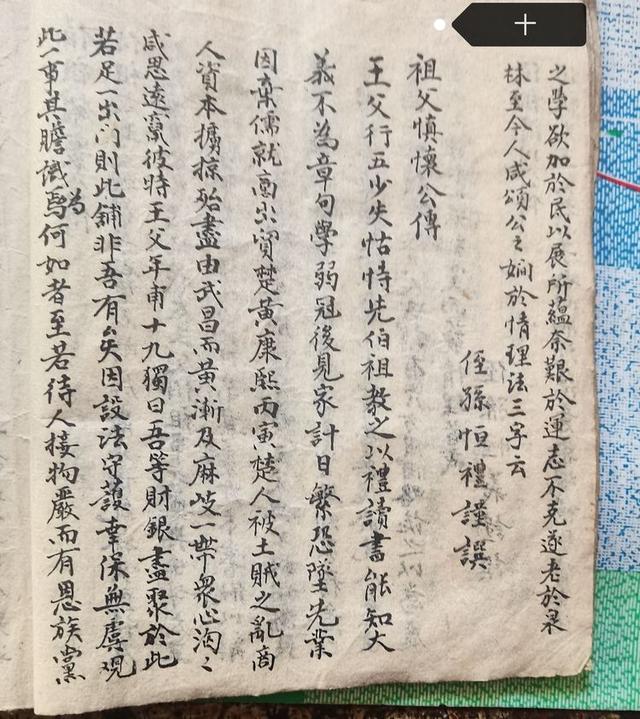 之學欲加於民以展所蘊奈艱於運志不克遂老於泉
林至今人咸頌公之嫻於情理法三字云
侄孫恒禮謹譔
祖父慎懷公傳
王父行五少失怙恃先伯祖教之以禮讀書能知大
義不為章句學弱冠後見家計日繁恐墜先業
因棄儒就商出貿楚黃康熙丙寅楚人被土賊之亂商
人資本擴掠殆盡由武昌而黃漸及麻岐一帶眾心洶々
咸思遠竄彼時王父年甫十九獨曰吾等財銀盡聚於此
若足一出门則此鋪非吾有矣因設法守護幸保無虞观
此一事其膽識為何如者至若待人接物嚴而有恩族黨